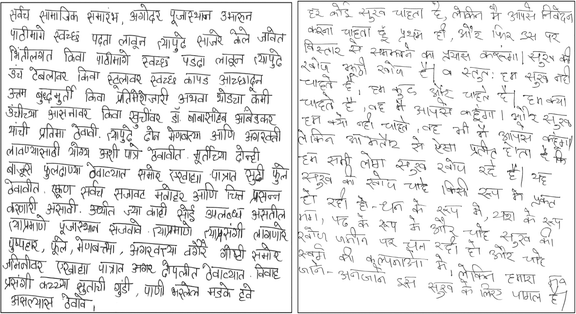 सर्वच सामाजिक समारंभ, अगोदर पूजास्थान उभारून
पाठीमागे स्वच्छ पडदा लावून त्यापुढे साजरे केले जावेत
भिंतीलगत किंवा पाठीमागे स्वच्छ पडदा लावून त्यापुढे
उंच टेबलावर किंवा स्टूलावर स्वच्छ कापड आच्छादून
उत्तम बुद्धमुर्ती किंवा प्रतिमेशेजारी अथवा थोड्या कमी
उंचीच्या आसनावर किंवा खुर्चीवर डॉ. बाबासाहेब आंबेडकर
यांची प्रतिमा ठेवावी. त्यापुढे दोन मेणबत्त्या आणि अगरबत्ती
लावण्यासाठी योग्य अशी पात्रे ठेवावीत. मूर्तीच्या दोन्ही
बाजूस फुलदाण्या ठेवाव्यात समोर एखाद्या पात्रात सुटी फुले
ठेवावीत. एकूण सर्वच सजावट मनोहर आणि चित्त प्रसन्न
करणारी असावी. अर्थात ज्या काही सोई उपलब्ध असतील
त्याप्रमाणे पूजास्थान सजवावे. त्याप्रमाणे त्याप्रसंगी लागणारे
पुष्पहार, फुले, मेणबत्त्या, अगरबत्त्या वगैरे गोष्टी समोर
जमिनीवर एखाद्या पात्रात अगर टीपॉयात ठेवाव्यात. विवाह
प्रसंगी कच्च्या सुताची गुंडी, पाणी भरलेले मडके हवे
असल्यास ठेवावे.
हर कोई सुख चाहता है, लेकिन मैं आपसे निवेदन
करना चाहता हूं प्रथम ही, और फिर उस पर
विस्तार से समझाने का प्रयास करूंगा। सुख की
खोज झूठी खोज है। वस्तुतः हम सुख नहीं
चाहते हैं, हम कुछ और चाहते हैं। हम क्या
चाहते हैं, वह मैं आपसे कहूंगा। और सुख
हम क्यों नहीं चाहते, वह भी मैं आपसे कहूंगा
लेकिन आमतौर से ऐसा प्रतीत होता है कि
हम सभी लोग सुख खोज रहे हैं। यह
सुख की खोज चाहे किसी रूप में प्रकट
हो रही हो-धन के रूप में, यश के रूप
में, पद के रूप में और चाहे सुख की
खोज जमीन पर चल रही हो और चाहे
स्वर्ग की कल्पनाओं में। लेकिन हमारा मन
जाने-अनजाने इस सुख के लिए पागल है।